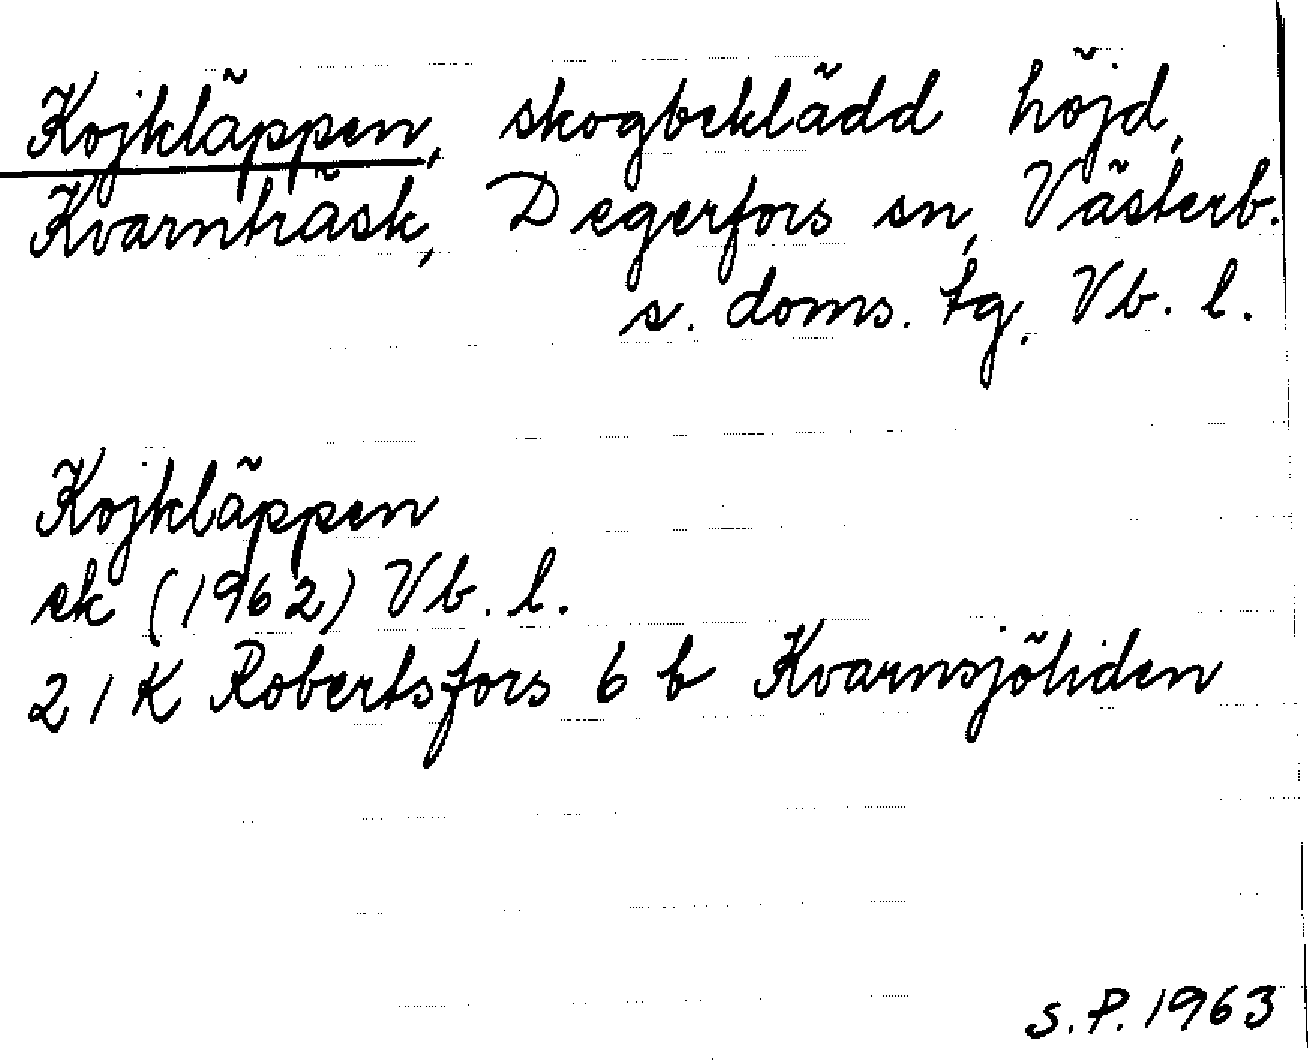 Kojkläppen, skogbeklädd höjd,
Kvarnträsk, Degerfors sn, Västerb.
s. doms. tg. Vb. l.
Kojkläppen
ek (1962) Vb. l.
21K Robertsfors 6 b Kvarnsjöliden
S.P. 1963